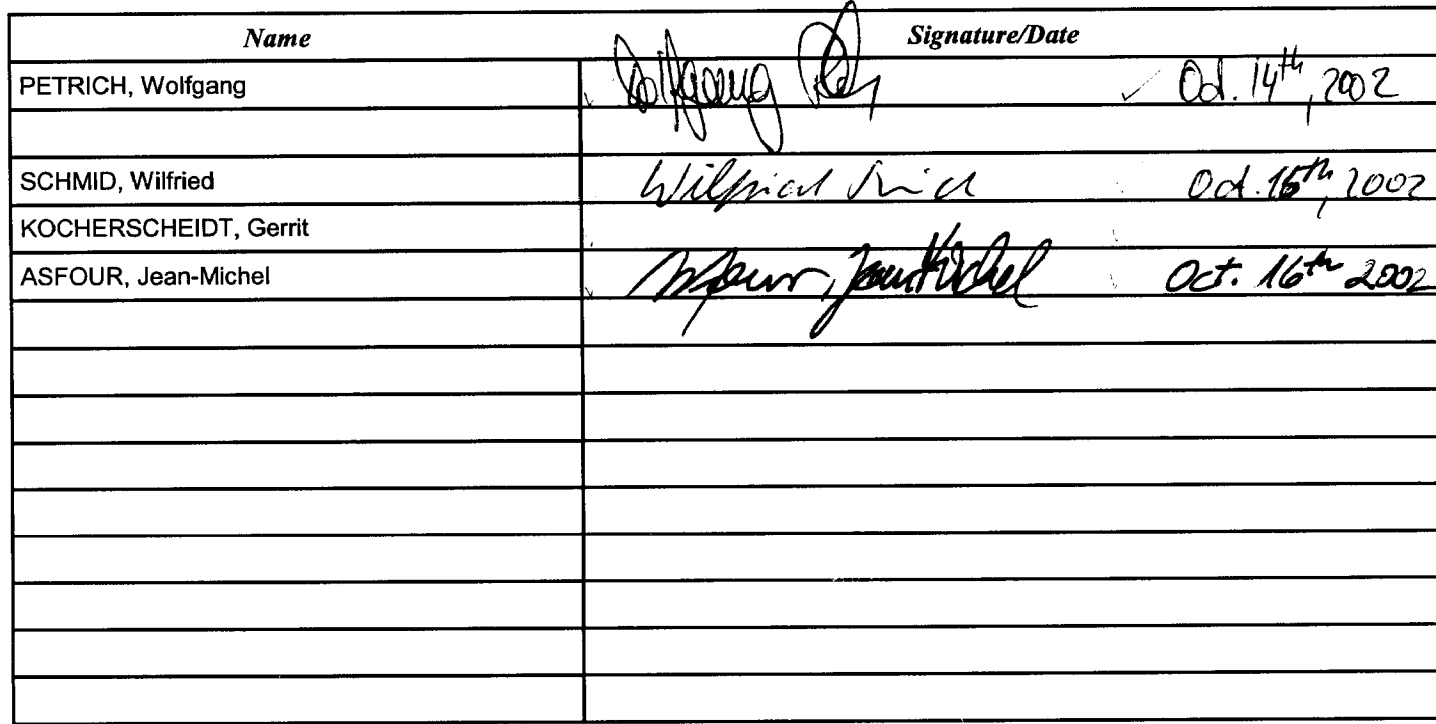 Name Signature/Date
PETRICH, Wolfgang Wolfgang Oct. 14th, 2002
SCHMID, Wilfried Wilfried Oct. 16th, 2002
KOCHERSCHEIDT, Gerrit
ASFOUR, Jean-Michel Asfour, Jean-Michel Oct. 16th 2002